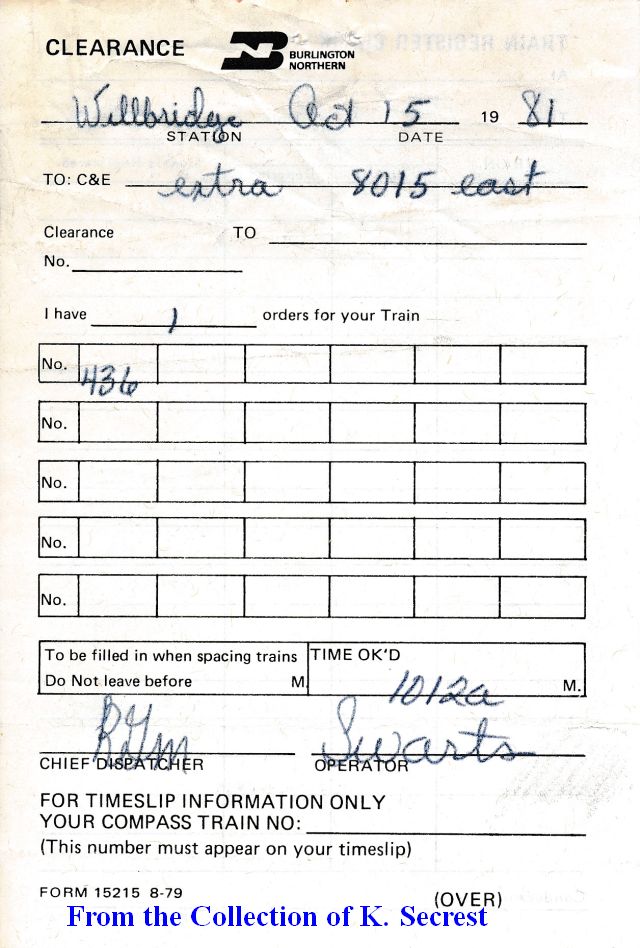 CLEARANCE BURLINGTON NORTHERN
Willbridge Oct 15 19 81
STATION DATE
TO: C&E extra 8015 east
Clearance TO
No.
I have 1 orders for your Train
No. 436
No.
No.
No.
No.
To be filled in when spacing trains TIME OK'D
Do Not leave before M. 1012a M.
RGM Swarts
CHIEF DISPATCHER OPERATOR
FOR TIMESLIP INFORMATION ONLY
YOUR COMPASS TRAIN NO:
(This number must appear on your timeslip)
FORM 15215 8-79 (OVER)
From the Collection of K. Secrest